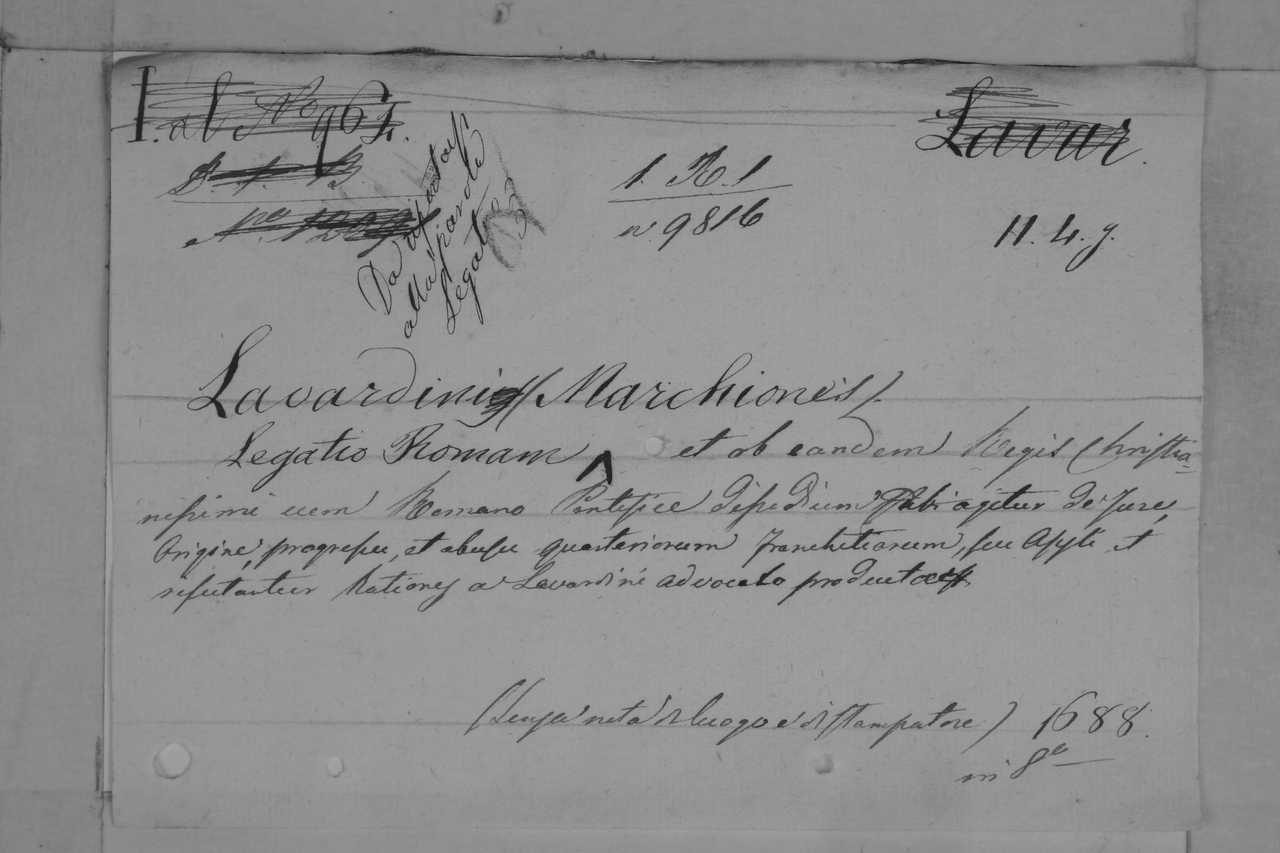 I. ab Nº 964.
Lavar.
Da riportarsi
alla parola
Legatio
1. R. 1
n. 9816
11. 4. g.
Lavardini (Marchionis).
Legatio Romam ^ et ob eandem Regis Christia-
nissimi cum Romano Pontifice dissidium Ubi agitur de Jure,
Origine, progressu, et abusu quarteriorum Franchitiarum, seu Asyli et
refutantur Rationes a Lavardini advocato productae
(senza nota di luogo e di stampatore) 1688.
in 8º